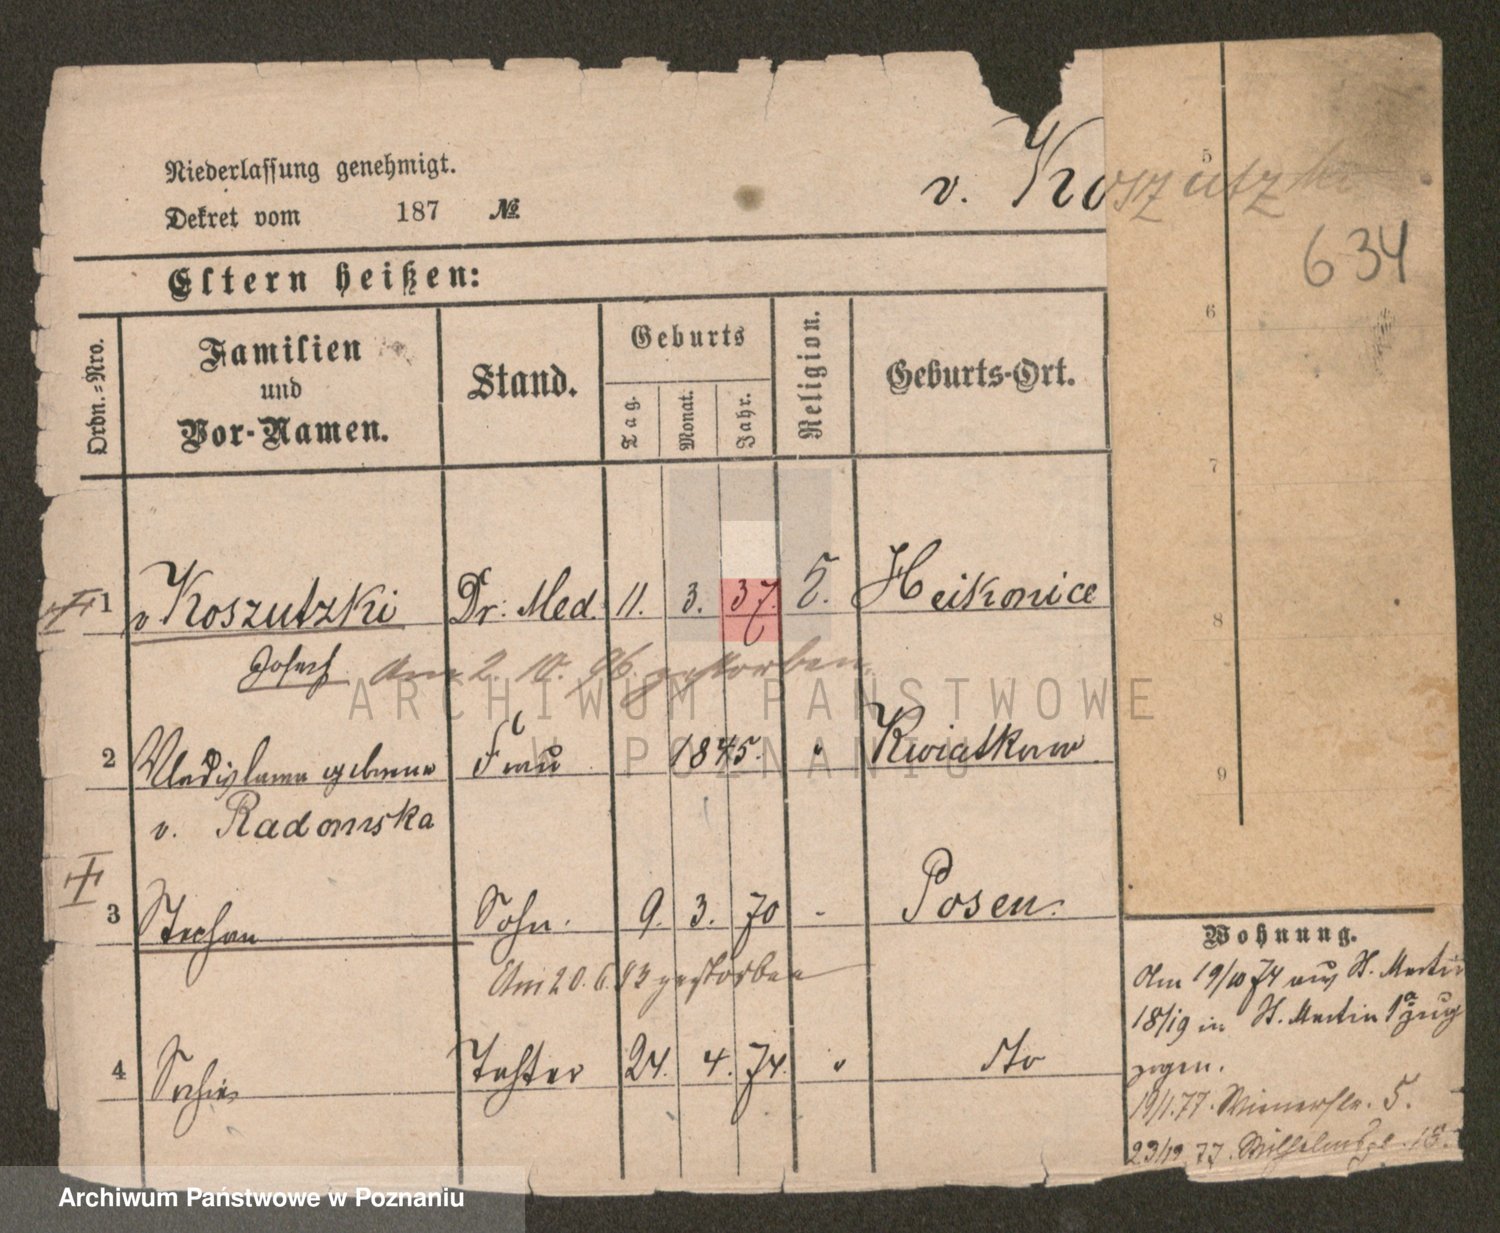 Niederlassung genehmigt.
Dekret vom 187 №
v. Koszutzki
634
Eltern heißen:
Ordn.-Nro.
Familien und Vor-Namen.
Stand.
Geburts
Tag. Monat. Jahr.
Religion.
Geburts-Ort.
1 v Koszutzki Dr. Med. 11. 3. 37. Heikonice
Josef am 2. 10. 96. gestorben.
2 Wladislawa geborene Frau 1845. " Kwiatkow
v. Radomska
3 Stephan Sohn. 9. 3. 70 - Posen.
Am 20. 6. 83 gestorben
4 Sophie Tochter 24. 4. 74. " dto
5
6
7
8
9
Wohnung.
Am 19/10 74 aus St. Martin
18/19 in St. Martin
zogen.
77. Wienerstr. 5.
77. Wilhelmspl.
ARCHIWUM PAŃSTWOWE
W POZNANIU
Archiwum Państwowe w Poznaniu